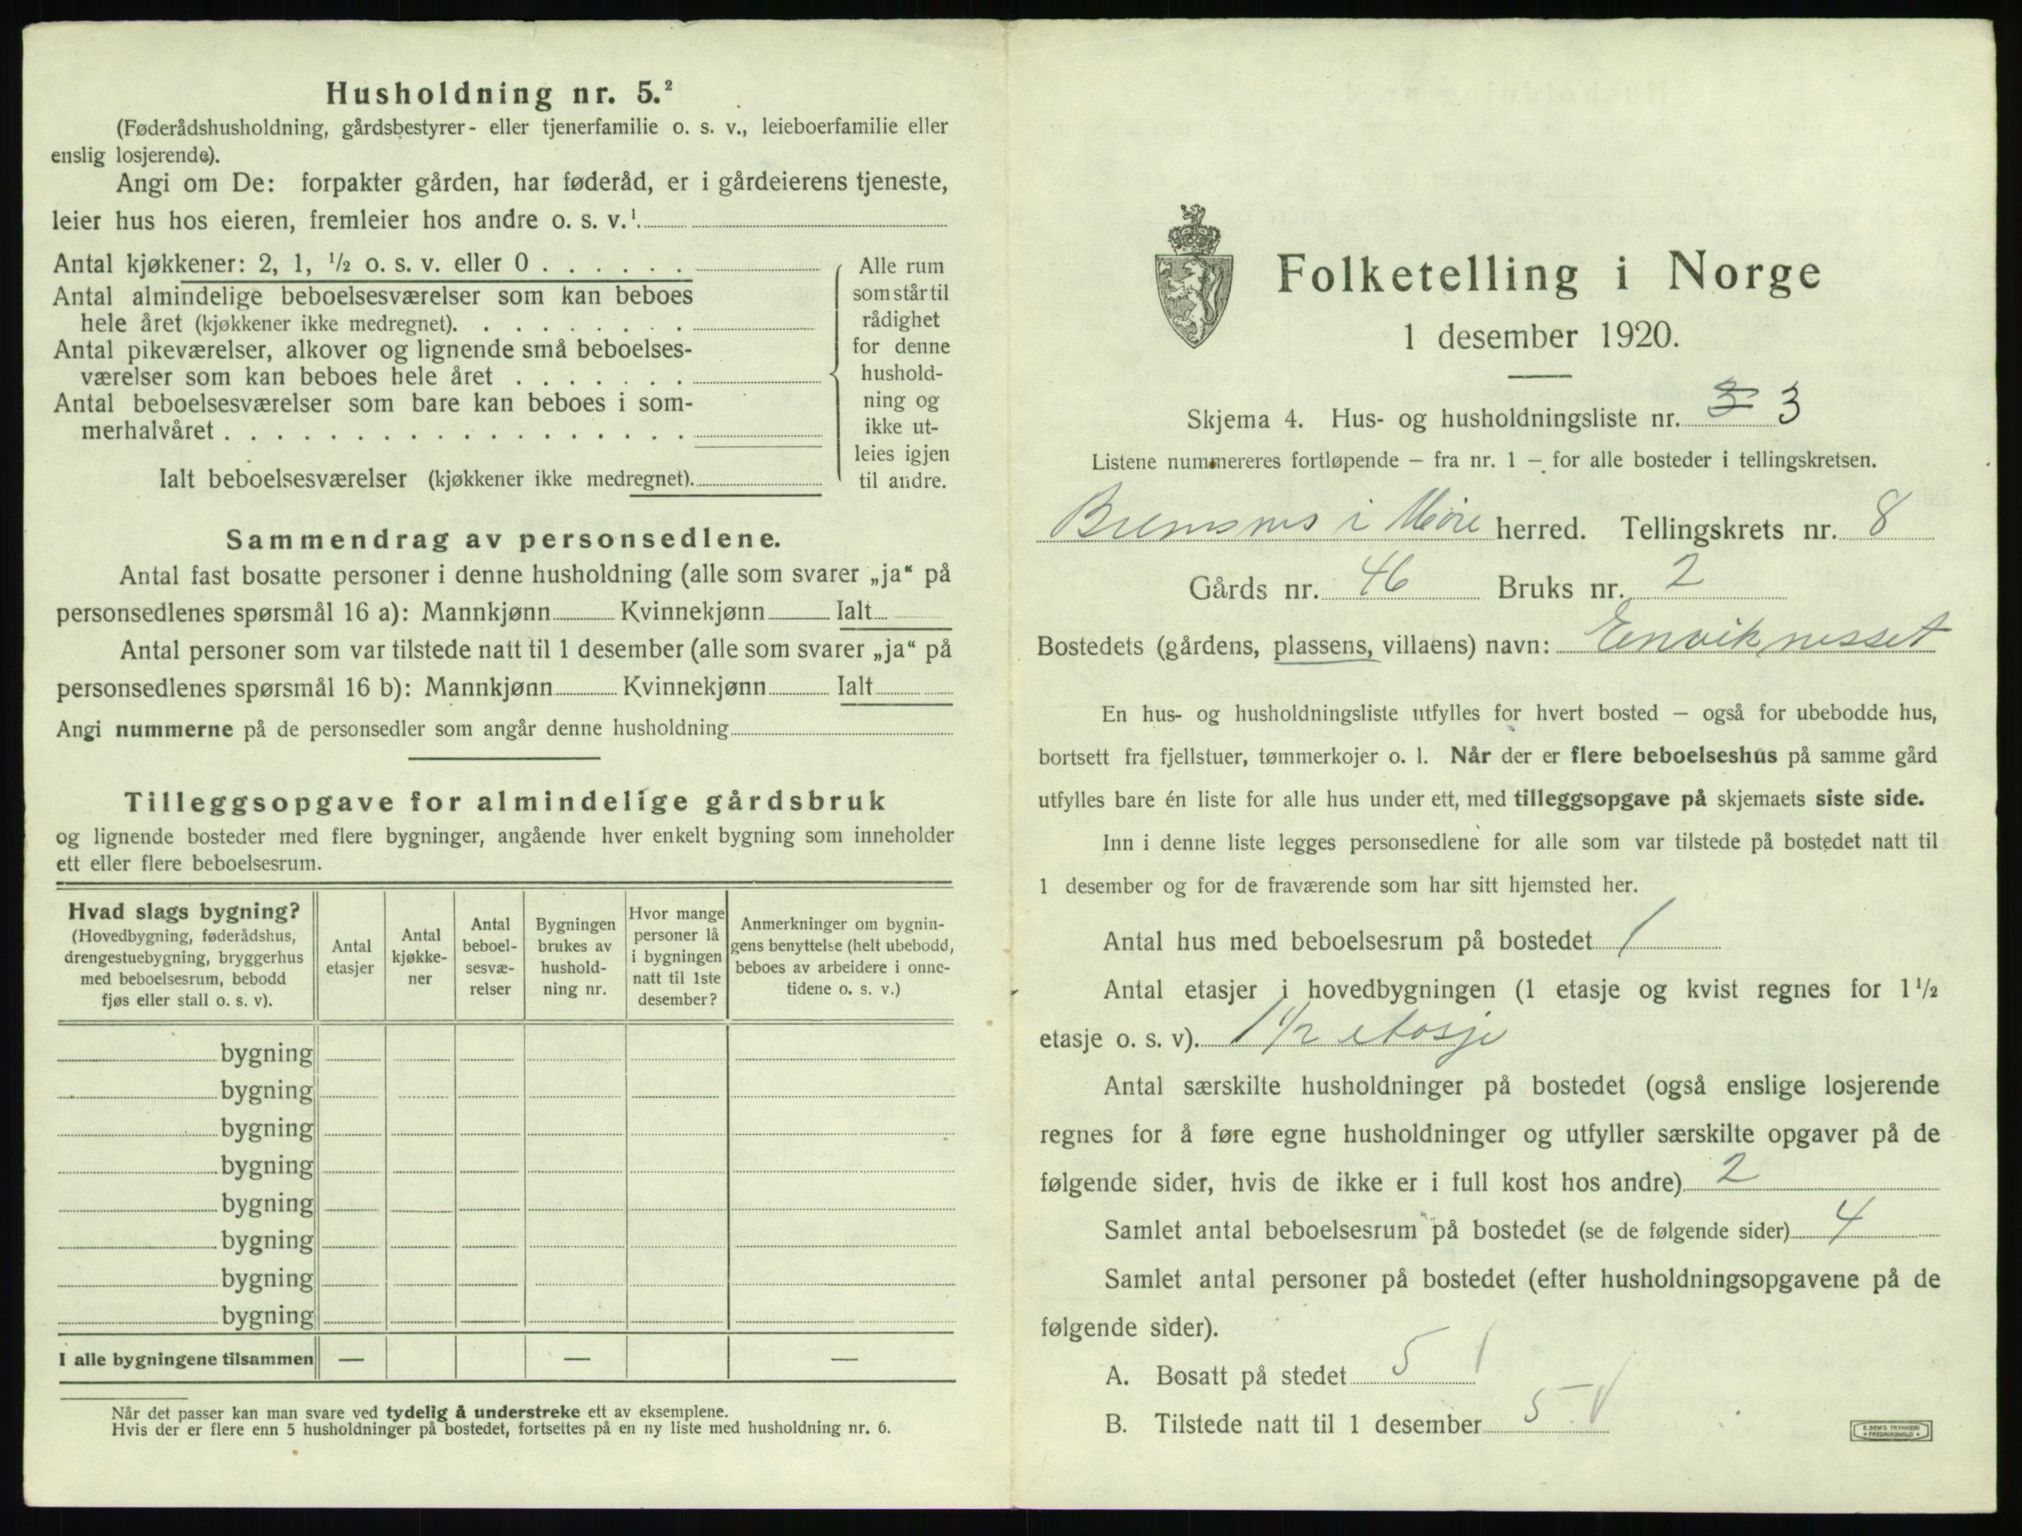 Husholdning nr. 5.²
(Føderådshusholdning, gårdsbestyrer- eller tjenerfamilie o. s. v., leieboerfamilie eller
enslig losjerende).
Angi om De: forpakter gården, har føderåd, er i gårdeierens tjeneste,
leier hus hos eieren, fremleier hos andre o. s. v.¹.
Antal kjøkkener: 2, 1, ½ o. s. v. eller 0 . . . . . .
Antal almindelige beboelsesværelser som kan beboes
hele året (kjøkkener ikke medregnet). . . . . . . . .
Antal pikeværelser, alkover og lignende små beboelses-
værelser som kan beboes hele året . . . . . . .
Antal beboelsesværelser som bare kan beboes i som-
merhalvåret . . . . . . . . . . . . . . . . . .
Ialt beboelsesværelser (kjøkkener ikke medregnet).
Alle rum
som står til
rådighet
for denne
hushold-
ning og
ikke ut-
leies igjen
til andre.
Sammendrag av personsedlene.
Antal fast bosatte personer i denne husholdning (alle som svarer „ja“ på
personsedlenes spørsmål 16 a): Mannkjønn Kvinnekjønn Ialt
Antal personer som var tilstede natt til 1 desember (alle som svarer „ja“ på
personsedlenes spørsmål 16 b): Mannkjønn Kvinnekjønn Ialt
Angi nummerne på de personsedler som angår denne husholdning
Tilleggsopgave for almindelige gårdsbruk
og lignende bosteder med flere bygninger, angående hver enkelt bygning som inneholder
ett eller flere beboelsesrum.
Hvad slags bygning?
(Hovedbygning, føderådshus,
drengestuebygning, bryggerhus
med beboelsesrum, bebodd
fjøs eller stall o. s. v).
Antal
etasjer
Antal
kjøkke-
ner
Antal
beboel-
sesvæ-
relser
Bygningen
brukes av
hushold-
ning nr.
Hvor mange
personer lå
i bygningen
natt til 1ste
desember?
Anmerkninger om bygnin-
gens benyttelse (helt ubebodd,
beboes av arbeidere i onne-
tidene o. s. v.)
bygning
bygning
bygning
bygning
bygning
bygning
bygning
bygning
I alle bygningene tilsammen — — —
Når det passer kan man svare ved tydelig å understreke ett av eksemplene.
Hvis der er flere enn 5 husholdninger på bostedet, fortsettes på en ny liste med husholdning nr. 6.
Folketelling i Norge
1 desember 1920.
Skjema 4. Hus- og husholdningsliste nr. 3 3
Listene nummereres fortløpende – fra nr. 1 – for alle bosteder i tellingskretsen.
Bremsnes i Møre herred. Tellingskrets nr. 8
Gårds nr. 46 Bruks nr. 2
Bostedets (gårdens, plassens, villaens) navn: Eenviknesset
En hus- og husholdningsliste utfylles for hvert bosted – også for ubebodde hus,
bortsett fra fjellstuer, tømmerkojer o. l. Når der er flere beboelseshus på samme gård
utfylles bare én liste for alle hus under ett, med tilleggsopgave på skjemaets siste side.
Inn i denne liste legges personsedlene for alle som var tilstede på bostedet natt til
1 desember og for de fraværende som har sitt hjemsted her.
Antal hus med beboelsesrum på bostedet 1
Antal etasjer i hovedbygningen (1 etasje og kvist regnes for 1 ½
etasje o. s. v). 1 1/2 etasje
Antal særskilte husholdninger på bostedet (også enslige losjerende
regnes for å føre egne husholdninger og utfyller særskilte opgaver på de
følgende sider, hvis de ikke er i full kost hos andre) 2
Samlet antal beboelsesrum på bostedet (se de følgende sider) 4
Samlet antal personer på bostedet (efter husholdningsopgavene på de
følgende sider).
A. Bosatt på stedet 5 1
B. Tilstede natt til 1 desember 5 1
E. SEM'S TRYKKERI
FREDRIKSHALD